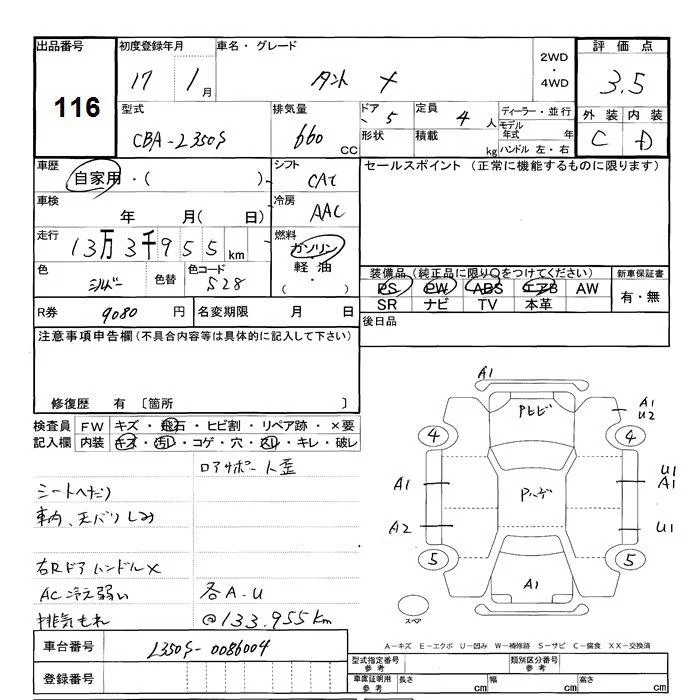 出品番号 初度登録年月 車名・グレード 2WD ・ 4WD 評価点
116 17 1月 タント X 3.5
型式 排気量 ドア 5 定員 4人 ディーラー・並行 外装 内装
CBA-L350S 660 CC 形状 積載 kg モデル年式 年 C D
ハンドル 左・右
車歴 自家用・( ) シフト CAT セールスポイント (正常に機能するものに限ります)
車検 年 月( 日) 冷房 AAC
走行 13万3千955km 燃料 ガソリン
軽油
・( )
色 シルバー 色替 色コード S28 装備品(純正品に限り○をつけてください) 新車保証書
PS PW ABS エアB AW 有・無
SR ナビ TV 本革
R券 9080円 名変期限 月 日 後日品
注意事項申告欄(不具合内容等は具体的に記入して下さい)
修復歴 有 〔箇所 〕
検査員 FW キズ・飛石・ヒビ割・リペア跡・×要
記入欄 内装 キズ・汚レ・コゲ・穴・スレ・キレ・破レ
シートヘたり
車内、天バリしみ
右Rドアハンドル×
AC冷え弱い 各A.U
排気もれ @133.955km
A1
A1
U2
4 4
A1 U1
A1
A2 U1
5 5
A1
スペア
A-キズ E-エクボ U-凹み W-補修跡 S-サビ C-腐食 XX-交換済
車台番号 L350S-0086004
登録番号
型式指定番号 参考 類別区分番号 参考
車庫証明用 参考 長さ cm 幅 cm 高さ cm